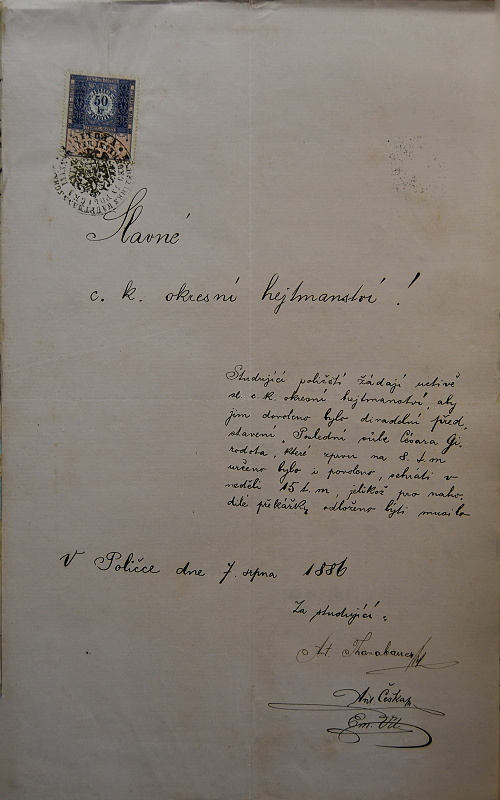 50
kr
Slavné
c. k. okresní hejtmanství!
Studující poličští žádají uctivě
sl. c. k. okresní hejtmanství, aby
jim dovoleno bylo divadelní před-
stavení „Poslední vůle Césara Gi-
rodota, které zprvu na 8. t. m
určeno bylo i povoleno, sehráti v
neděli 15 t. m, jelikož pro naho-
dilé překážky odloženo býti musilo
V Poličce dne 7. srpna 1886
Za studující:
Ant. Češka
Em.